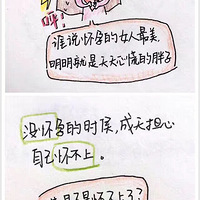 谁说怀孕的女人最美,
明明就是天天心慌的胖子
没怀孕的时候,成天担心
自己怀不上。
怀不上了?